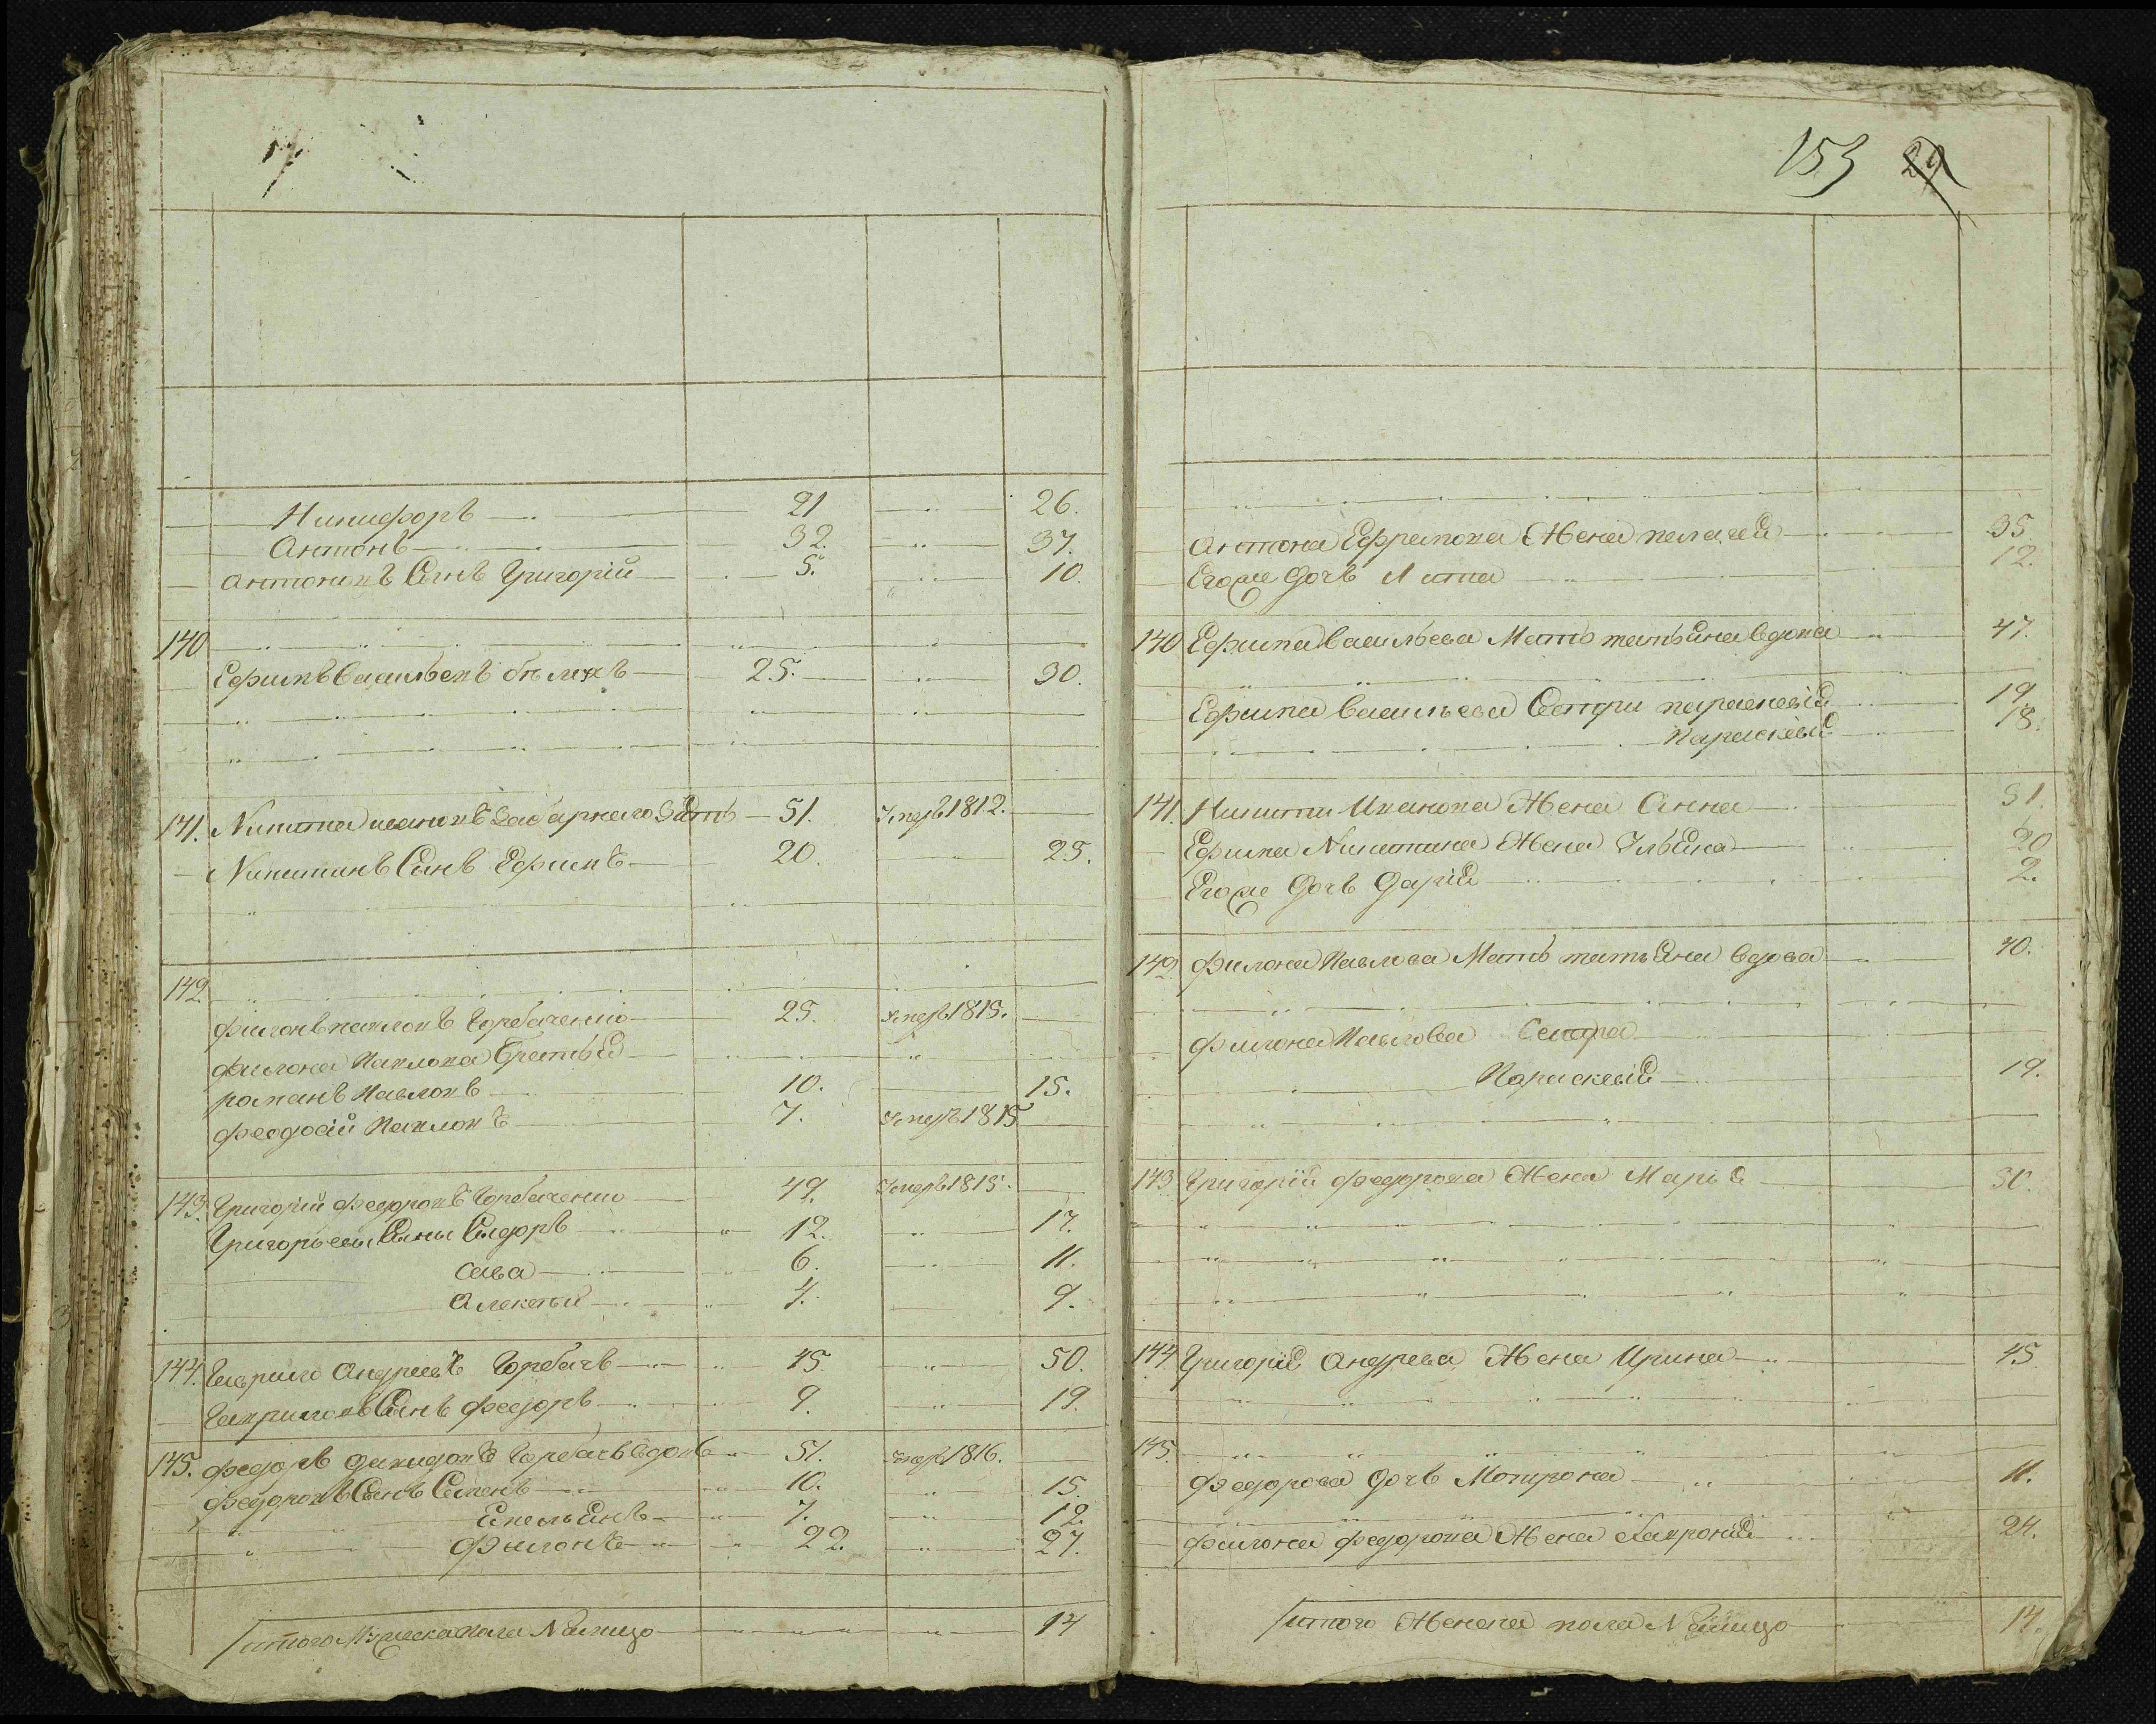 Никифоръ 21 26.
Антонъ 32. 37.
Антоновъ Сынъ Григорій 5. 10.
140
Ефимъ Васильевъ 25. 30.
141. Никита Ивановъ Зять 51. Умеръ 1812.
Никитинъ Сынъ Ефимъ 20. 25.
142
Филонъ Павловъ Горбаченко 25. Умеръ 1815.
Филона Павлова Братья
Романъ Павловъ 10. 15.
Феодосій Павловъ 7. Умеръ 1815
143. Григорій Федоровъ Горбаченко 49. Умеръ 1815.
Григорьевы Сыны Сидоръ 12. 17.
Сава 6. 11.
Алексѣй 4. 9.
144. Гаврило Андреевъ Горбачъ 45. 50.
Гавриловъ Сынъ Федоръ 9. 19.
145. Федоръ Давидовъ Горбачъ вдовъ 51. Умеръ 1816.
Федоровъ Сынъ Семенъ 10. 15.
Емельянъ 7. 12
Филонъ 22. 27.
итого Мужеска пола Налицо 14
153 29
Антона Ефремова Жена Пелагея 35.
Егоже Дочь 12.
140 Ефима Васильева Мать татьяна вдова 47.
Ефима Васильева Сестри параскевія 19
Параскевія 18.
141. Никити Иванова Жена Анна 51.
Ефима Никитина Жена Ульяна 20
Егоже Дочь Дарія 2.
142 Филона Павлова Мать татьяна вдова 40.
Филона Павлова Сестра
Параскевія 19.
143 Григорія Федорова Жена Марья 50.
144 Григорія Андреева Жена Ирина 45.
145.
Федорова Дочь Мотрона 11.
Филона Федорова Жена 24.
итого Женска пола Налицо 14.